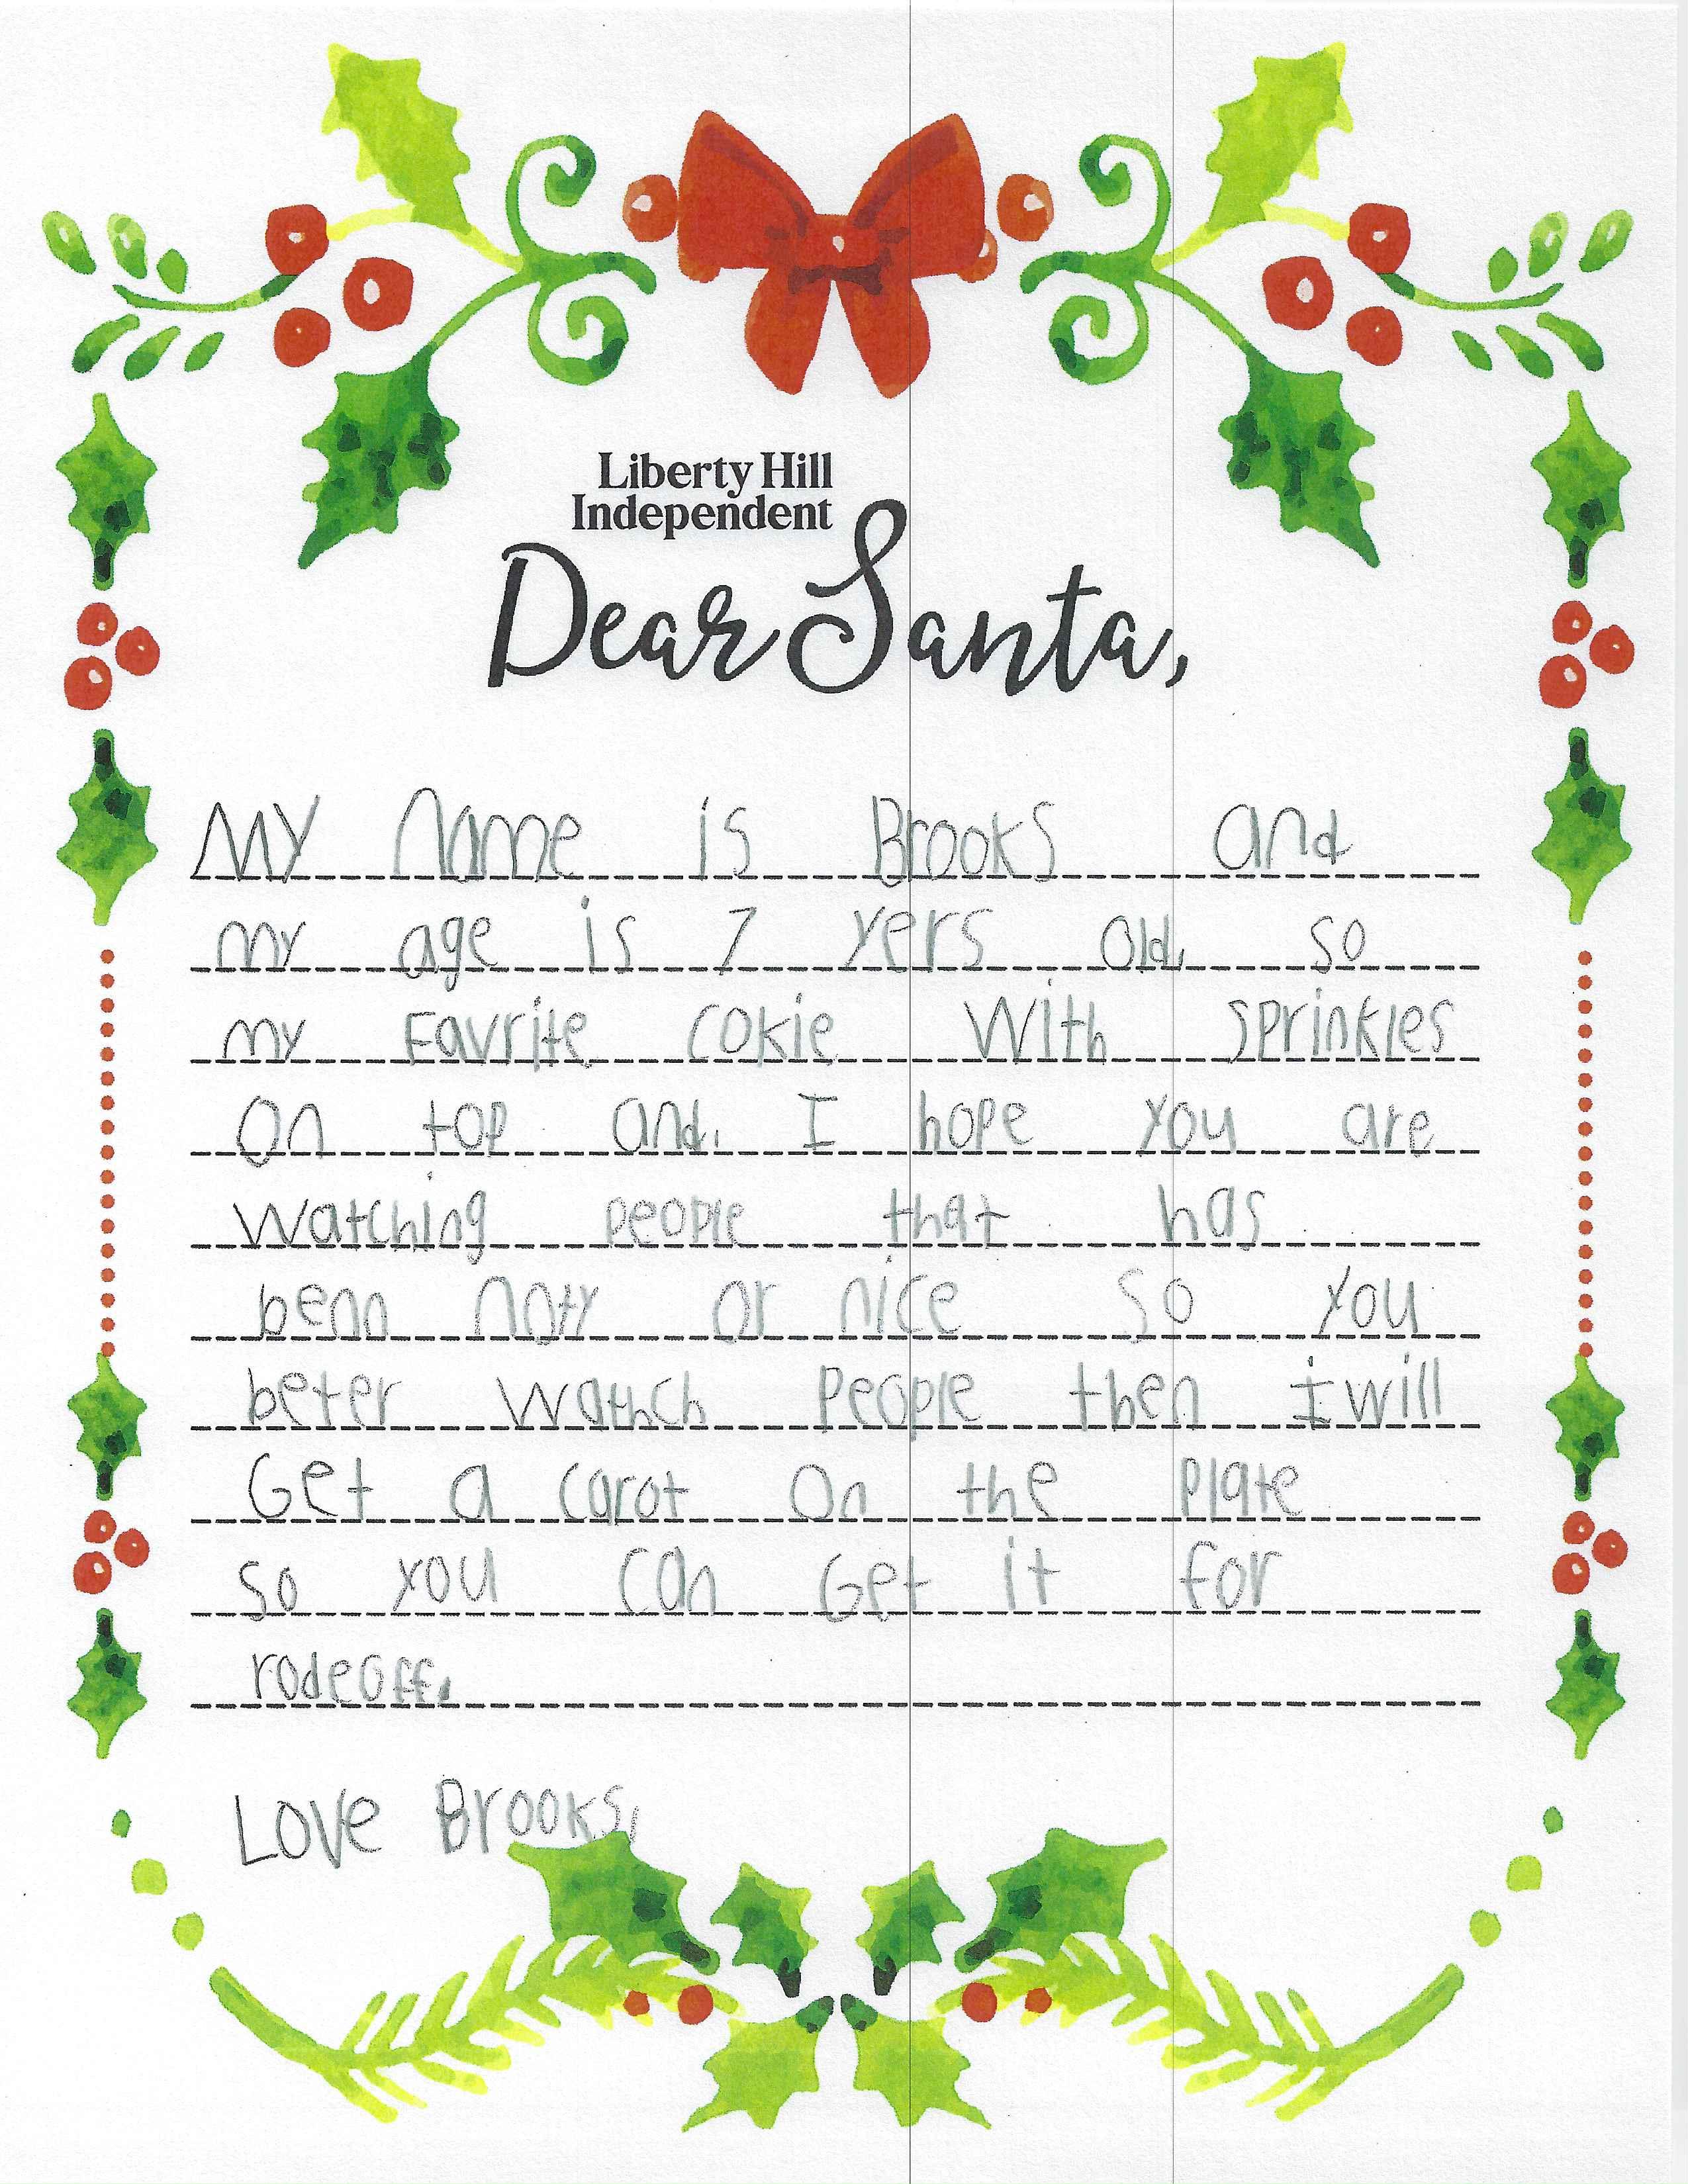 Liberty Hill
Independent
Dear Santa,
MY Name is Brooks and
my age is 7 yers old, so
my Favrite cokie With sprinkles
On top and. I hope you are
Watching people that has
benn noty or nice so you
beter wathch People then I will
Get a carot On the Plate
so you can Get it for
rodeoff.
Love Brooks,